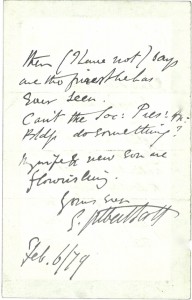 them (I have not) says
are the finest he has
ever seen.
Can't the Soc: Pres:
do something?
My wife & new son are
flourishing.
Yours ever
Feb. 6/79